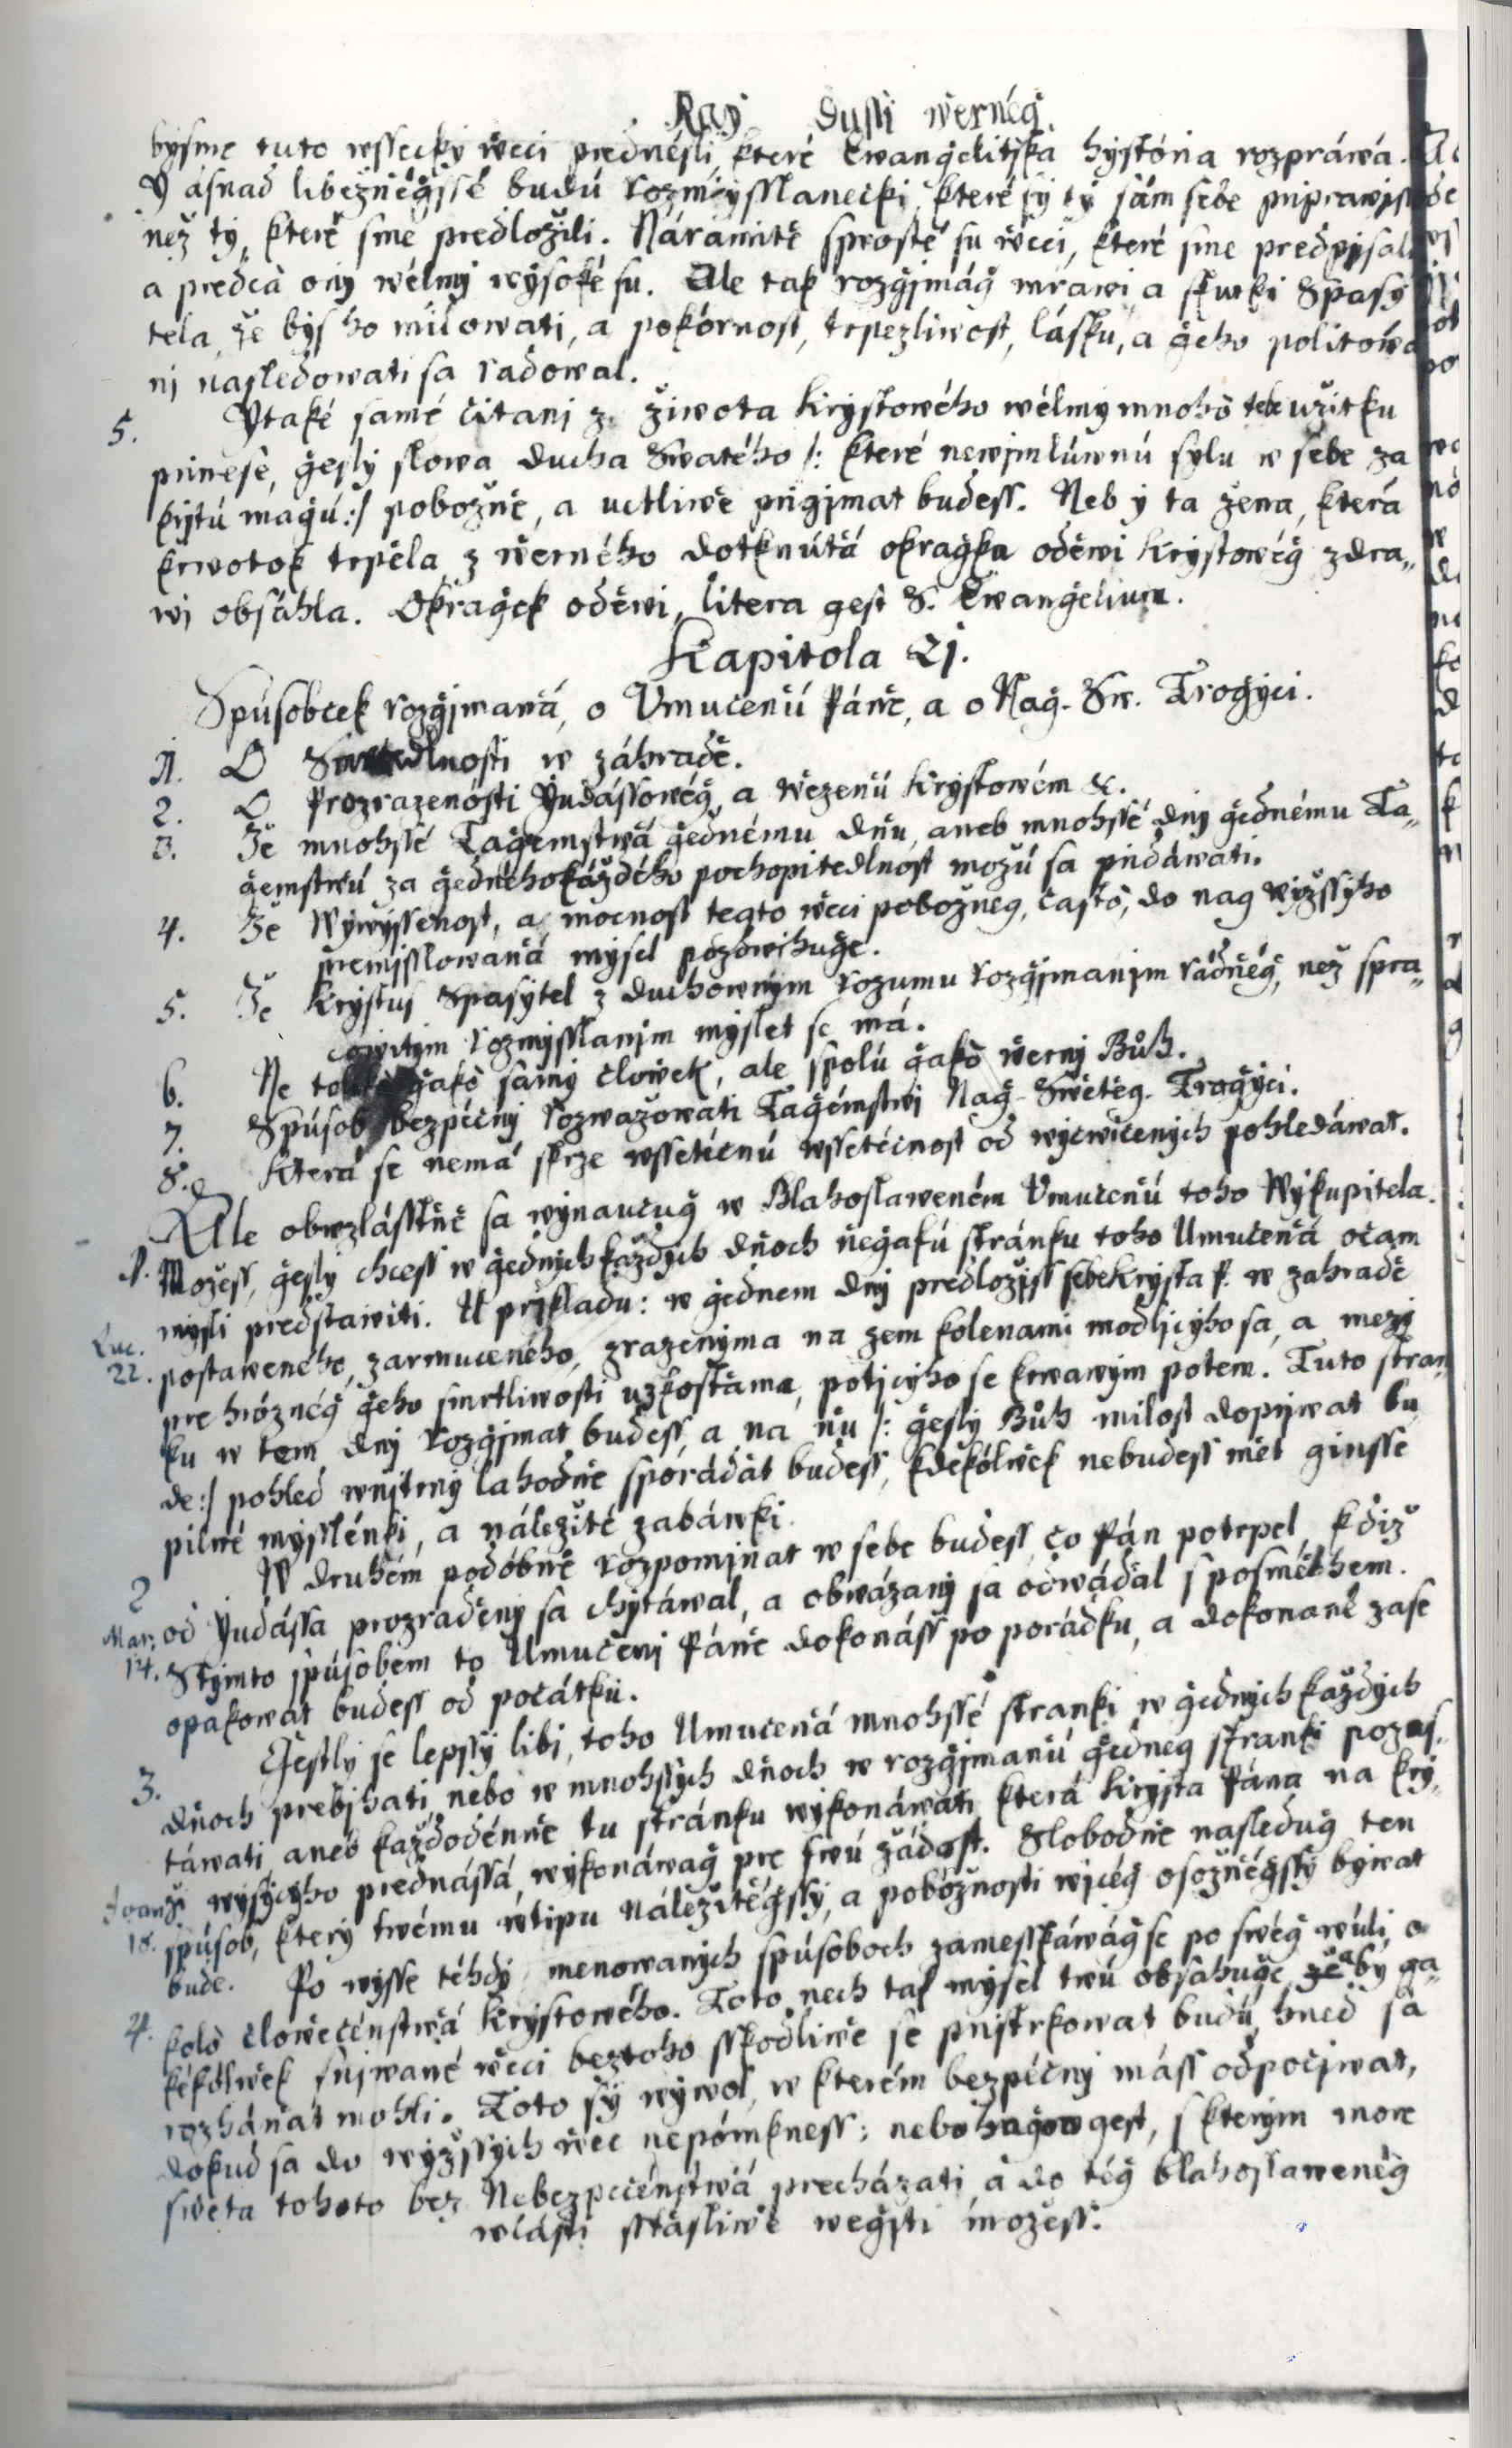 Rag Dussi wernég.
bysme tuto wssecky weci prednésli, které Ewangelitská hystória rozpráwá.
Y asnad libežnégssé budú rozmysslanečki, které sy ty sám sebe priprawjss
než ty, které sme predložili. Náramitě sprosté su wěci, které sme predpjsali
a predca ony wélmi wysoké su. Ale tak rozgjmág mrawi a skutki Spasy
tela, že bys ho milowati, a pokórnost, trpezliwost, lásku, a geho politowá
nj nasledowati sa radówal.
5. Ytaké samé čitanj z žiwota Krystowého wélmy mnohó tebe užitku
prinese, gesly slowa Ducha Swatého /: které newjmlúwnú sylu w sebe za
kijtú magú :/ pobožně, a uctliwě prigjmat budess. Neb y ta žena, která
krwotok trpěla z werného dotknútá okragka oděwi Krystowég zdra„
wj obsáhla. Okragek oděwi, litera gest S. Ewangelium.
Kapitola 21.
Spúsobcek rozgjmaná, o Umučenú Páně, a o Nag. Sw. Trogyci.
1. O Swetedlnosti w záhradě.
2. O Prozrazenósti Yudássowég, a wězenú Krystowém &.
3. Že mnohssé Tagemstwá gednému dňu, aneb mnohssé dny gednému Ta„
gemstwú za gednéhokáždého pochopitedlnost možú sa pridáwati.
4. Že Wywyssenost, a mocnost tegto wěci pobožneg, často, do nag wyžssyho
premisslowaná mysel pozdwihuge.
5. Že Krystus Spasytel z duchowným rozumu rozgjmanjm rádněg, než spra„
cowitým rozmysslanjm myslet se má.
6. Ne toliko gakó samý člowěk, ale spolú gakó werný Bůh.
7. Spúsob bezpéčný rozwažowati Tagémstwj Nag-Swěteg. Trogyci.
8. Která se nemá skrze wssetěčnú wssetéčnost od wycwičených pohledáwat.
Ale obwzlásstně sa wynaučug w Blahoslaweném Umučenú toho Wykupitela.
1. Možess, gesly chcess w gedných každých dňoch negakú stránku toho Umučená očam
mysli predstawiti. U prjkladu: w gednem dny predložjss sebe Krysta P. w zahradě
Luc. 22. postaweného, zarmuceného, zrazenýma na zem kolenami modljcyho sa, a mezy
pre hrózněg geho smrtliwosti uzkostáma, potjcyho se krwawým potem. Tuto stran„
ku w tem dny rozgjmat budess, a na ňu /: gesly Bůh milost dopjwat bu
de :/ pohled wnjtrný lahodně sporádát budess, kdekólwěk nebudess mět ginsse
pilné mysslénki, a náležité zabáwki.
2 W druhém podóbně rozpomjnat w sebe budess, čo Pán potrpel, kdiž
Mar: 14. od Yudássa prozraděný sa chytáwal, a obwázaný sa odwádál s posměchem.
Stýmto spúsobem to Umučenj Páně dokonáss po porádku, a dokonané zase
opakowat budess od počátkú.
3. Gestly se lepssy libj, toho Umučená mnohssé stranki w gedných každých
dňoch prebjhati, nebo w mnohssých dňoch w rozgjmanú gedneg stranki pozas„
táwati, aneb každodénně tu stránku wykonáwati, která Krysta Pána na kry„
Joan: 18. ži wysycyho prednássá, wykonáwag pre twú žádost. Slobodně nasledug ten
spúsob, který twému wtipu náležitěgssy, a pobóžnosti wjcég osožněgssý býwat
bude. Po wysse téhdy menowaných spúsoboch zamesskáwág se po swég wúli, o
4. koló člowěčénstwá Krystowého. Toto nech tak mysel twú obsahuge, že aby ga„
kékólwěk snjwané wěci beztoho sskodliwě se pristrkowat budú, hned sa
rozháňat mohli. Toto sy wywol, w kterém bezpéčný máss odpočjwat,
dokud sa do wyžssých wěc nepómkness: nebo hagow gest, s kterým more
swěta tohoto bez Nebezpečénstwá precházati, a do tég blahoslawenég
wlásti sstásliwě wegsti možess.